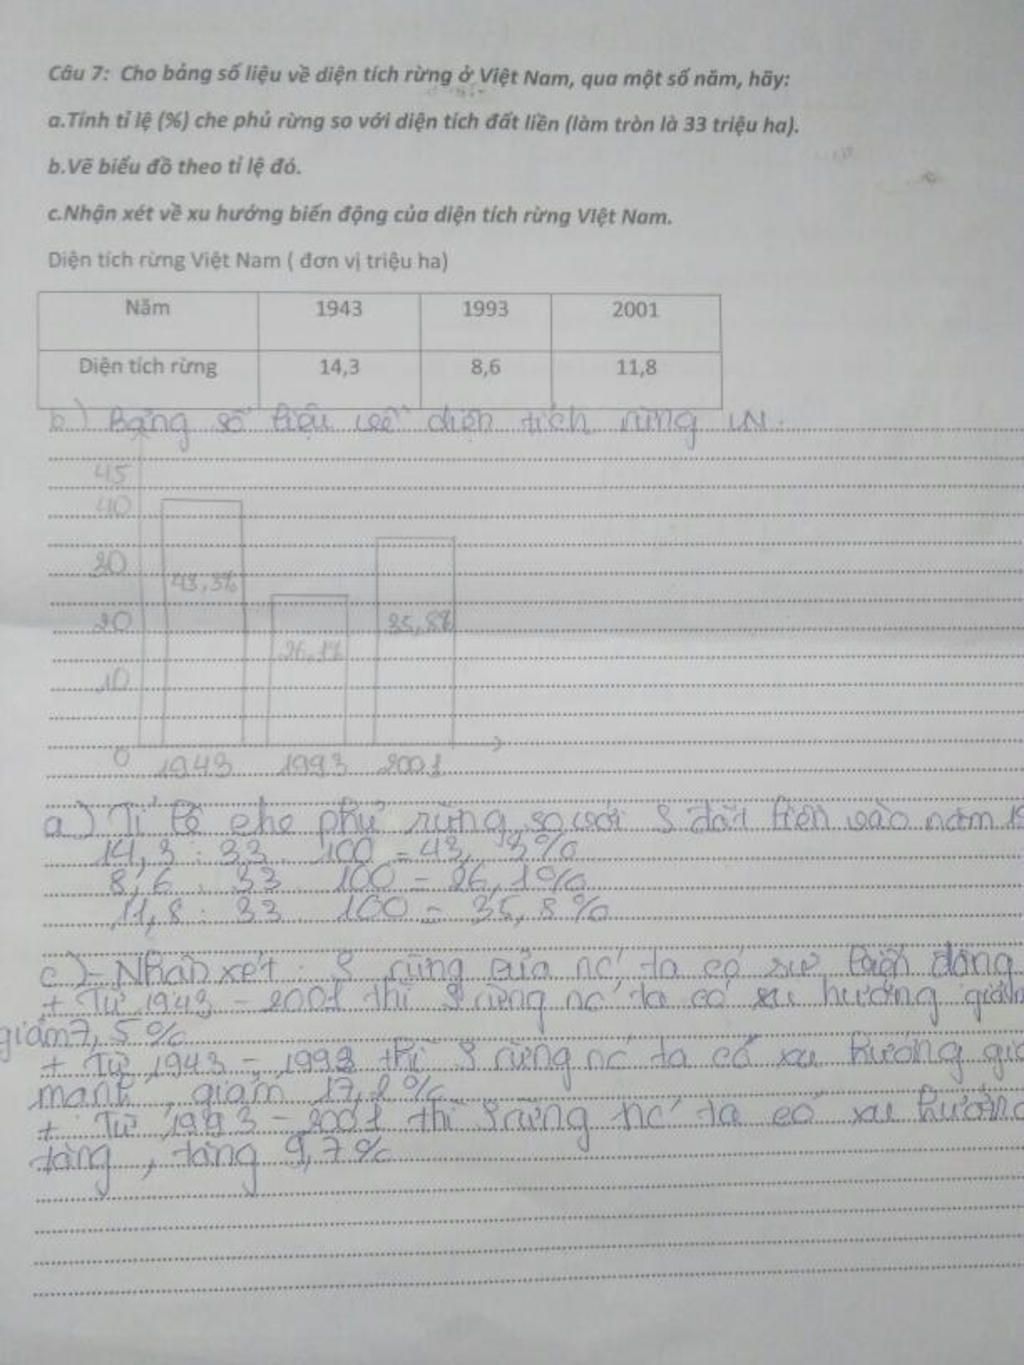 Câu 7: Cho bảng số liệu về diện tích rừng ở Việt Nam, qua một số năm, hãy:
a.Tính tỉ lệ (%) che phủ rừng so với diện tích đất liền (làm tròn là 33 triệu ha).
b.Vẽ biểu đồ theo tỉ lệ đó.
c.Nhận xét về xu hướng biến động của diện tích rừng Việt Nam.
Diện tích rừng Việt Nam ( đơn vị triệu ha)
Năm 1943 1993 2001
Diện tích rừng 14,3 8,6 11,8
b) Bảng số liệu về diện tích rừng VN.
45
40
30
43,3%
20
35,8%
26,1%
10
0
1943 1993 2001
a) Tỉ lệ che phủ rừng so với S đất liền vào năm 19
14,3 : 33 . 100 = 43,3%
8,6 : 33 . 100 = 26,1%
11,8 : 33 . 100 = 35,8%
c) - Nhận xét : S rừng của nc' ta có sự biến động
+ Từ 1943 - 2001 thì S rừng nc' ta có xu hướng giảm
giảm 7,5%
+ Từ 1943 - 1993 thì S rừng nc' ta có xu hướng giả
mạnh, giảm 17,2%
+ Từ 1993 - 2001 thì S rừng nc' ta có xu hướng
tăng, tăng 9,7%